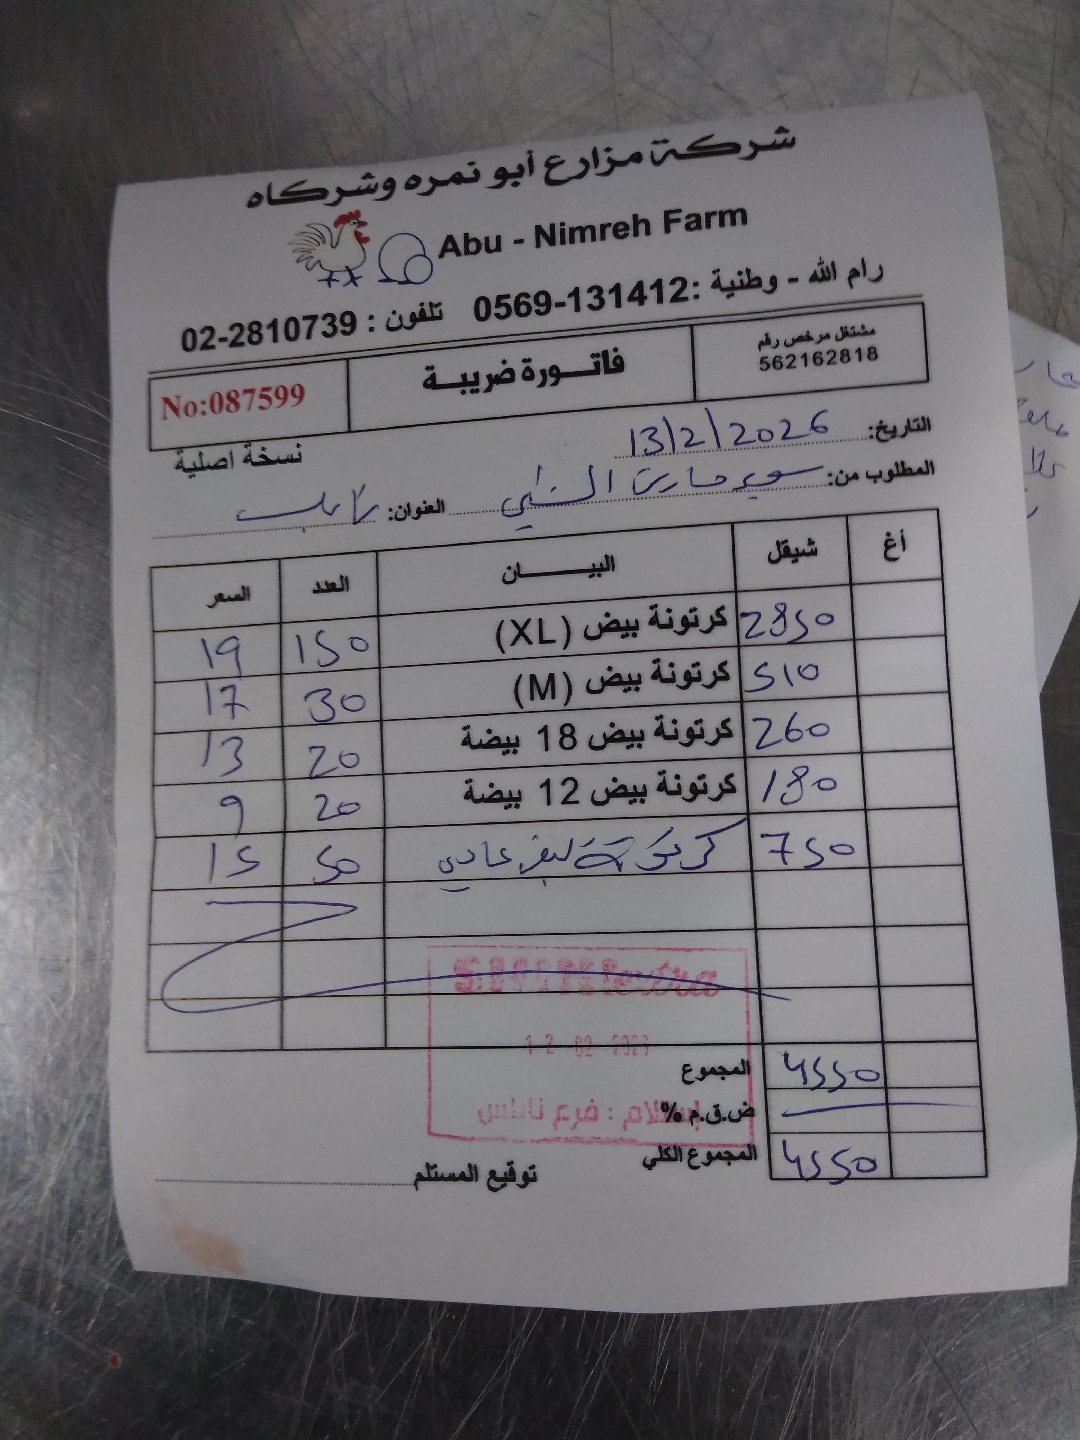 شركة مزارع أبو نمره وشركاه
Abu - Nimreh Farm
رام الله - وطنية :0569-131412 تلفون : 02-2810739
مشتغل مرخص رقم
562162818
فاتورة ضريبة
No:087599
نسخة اصلية
التاريخ: 13/2/2026
المطلوب من: سوبر ماركت الشني العنوان: نابلس
أغ شيقل البيان العدد السعر
2850 كرتونة بيض (XL) 150 19
510 كرتونة بيض (M) 30 17
260 كرتونة بيض 18 بيضة 20 13
180 كرتونة بيض 12 بيضة 20 9
750 كرتونة بيض عادي 50 15
12 02 2026
المجموع 4550
ض.ق.م %
إستلام : فرع نابلس
المجموع الكلي 4550
توقيع المستلم